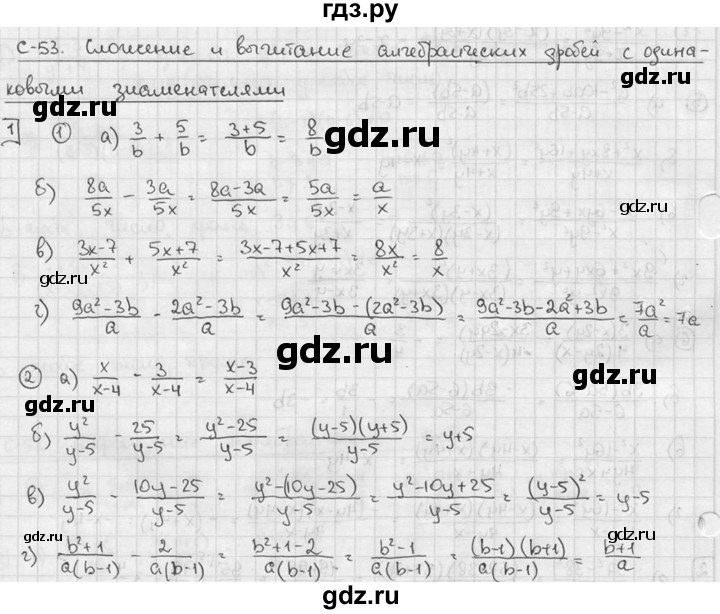 гдз.ру
С-53. Сложение и вычитание алгебраических дробей с одина-
ковыми знаменателями
gdz.ru gdz.ru gdz.ru
1 ① а) 3/b + 5/b = (3+5)/b = 8/b
б) 8a/5x - 3a/5x = (8a-3a)/5x = 5a/5x = a/x
в) (3x-7)/x² + (5x+7)/x² = (3x-7+5x+7)/x² = 8x/x² = 8/x
gdz.ru gdz.ru
г) (9a²-3b)/a - (2a²-3b)/a = (9a²-3b-(2a²-3b))/a = (9a²-3b-2a²+3b)/a = 7a²/a = 7a
gdz.ru
② а) x/(x-4) - 3/(x-4) = (x-3)/(x-4)
gdz.ru gdz.ru
б) y²/(y-5) - 25/(y-5) = (y²-25)/(y-5) = ((y-5)(y+5))/(y-5) = y+5
gdz.ru
в) y²/(y-5) - (10y-25)/(y-5) = (y²-(10y-25))/(y-5) = (y²-10y+25)/(y-5) = (y-5)²/(y-5) = y-5
gdz.ru gdz.ru
г) (b²+1)/(a(b-1)) - 2/(a(b-1)) = (b²+1-2)/(a(b-1)) = (b²-1)/(a(b-1)) = ((b-1)(b+1))/(a(b-1)) = (b+1)/a
gdz.ru